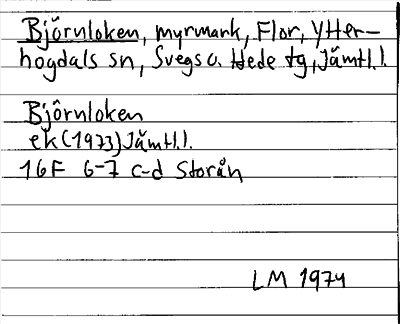 Björnloken, myrmark, Flor, Ytter-
hogdals sn, Svegs o. Hede tg, Jämtl.l.
Björnloken
ek (1973) Jämtl.l.
16F 6-7 c-d Storån
LM 1974